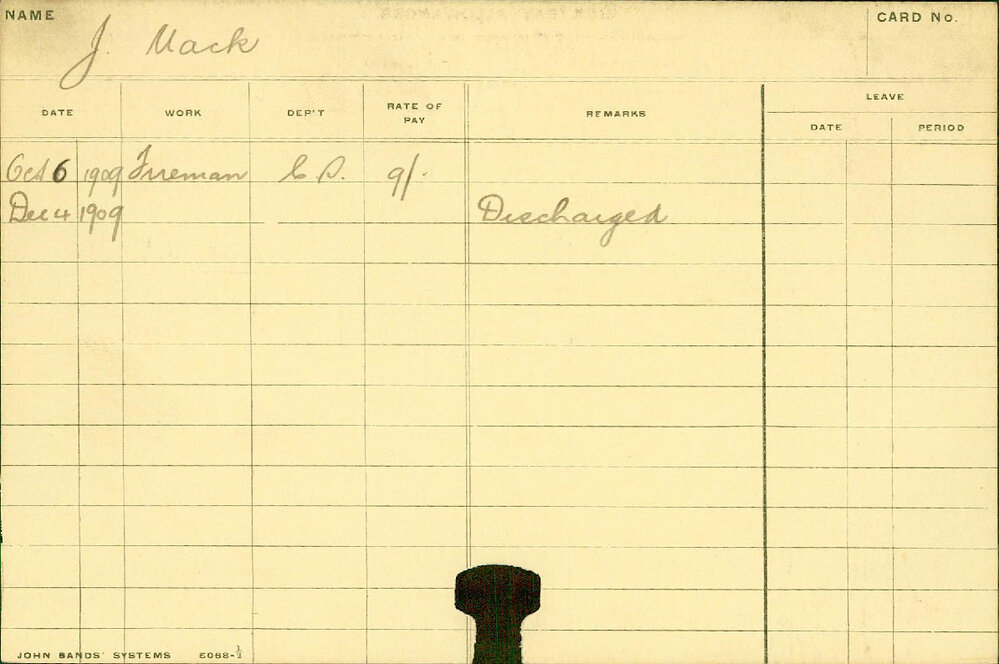 NAME
CARD No.
J. Mack
LEAVE
DATE WORK DEP'T RATE OF PAY REMARKS DATE PERIOD
Oct 6 1909 Fireman C P. 9/-
Dec 4 1909 Discharged
JOHN SANDS' SYSTEMS 5088-½